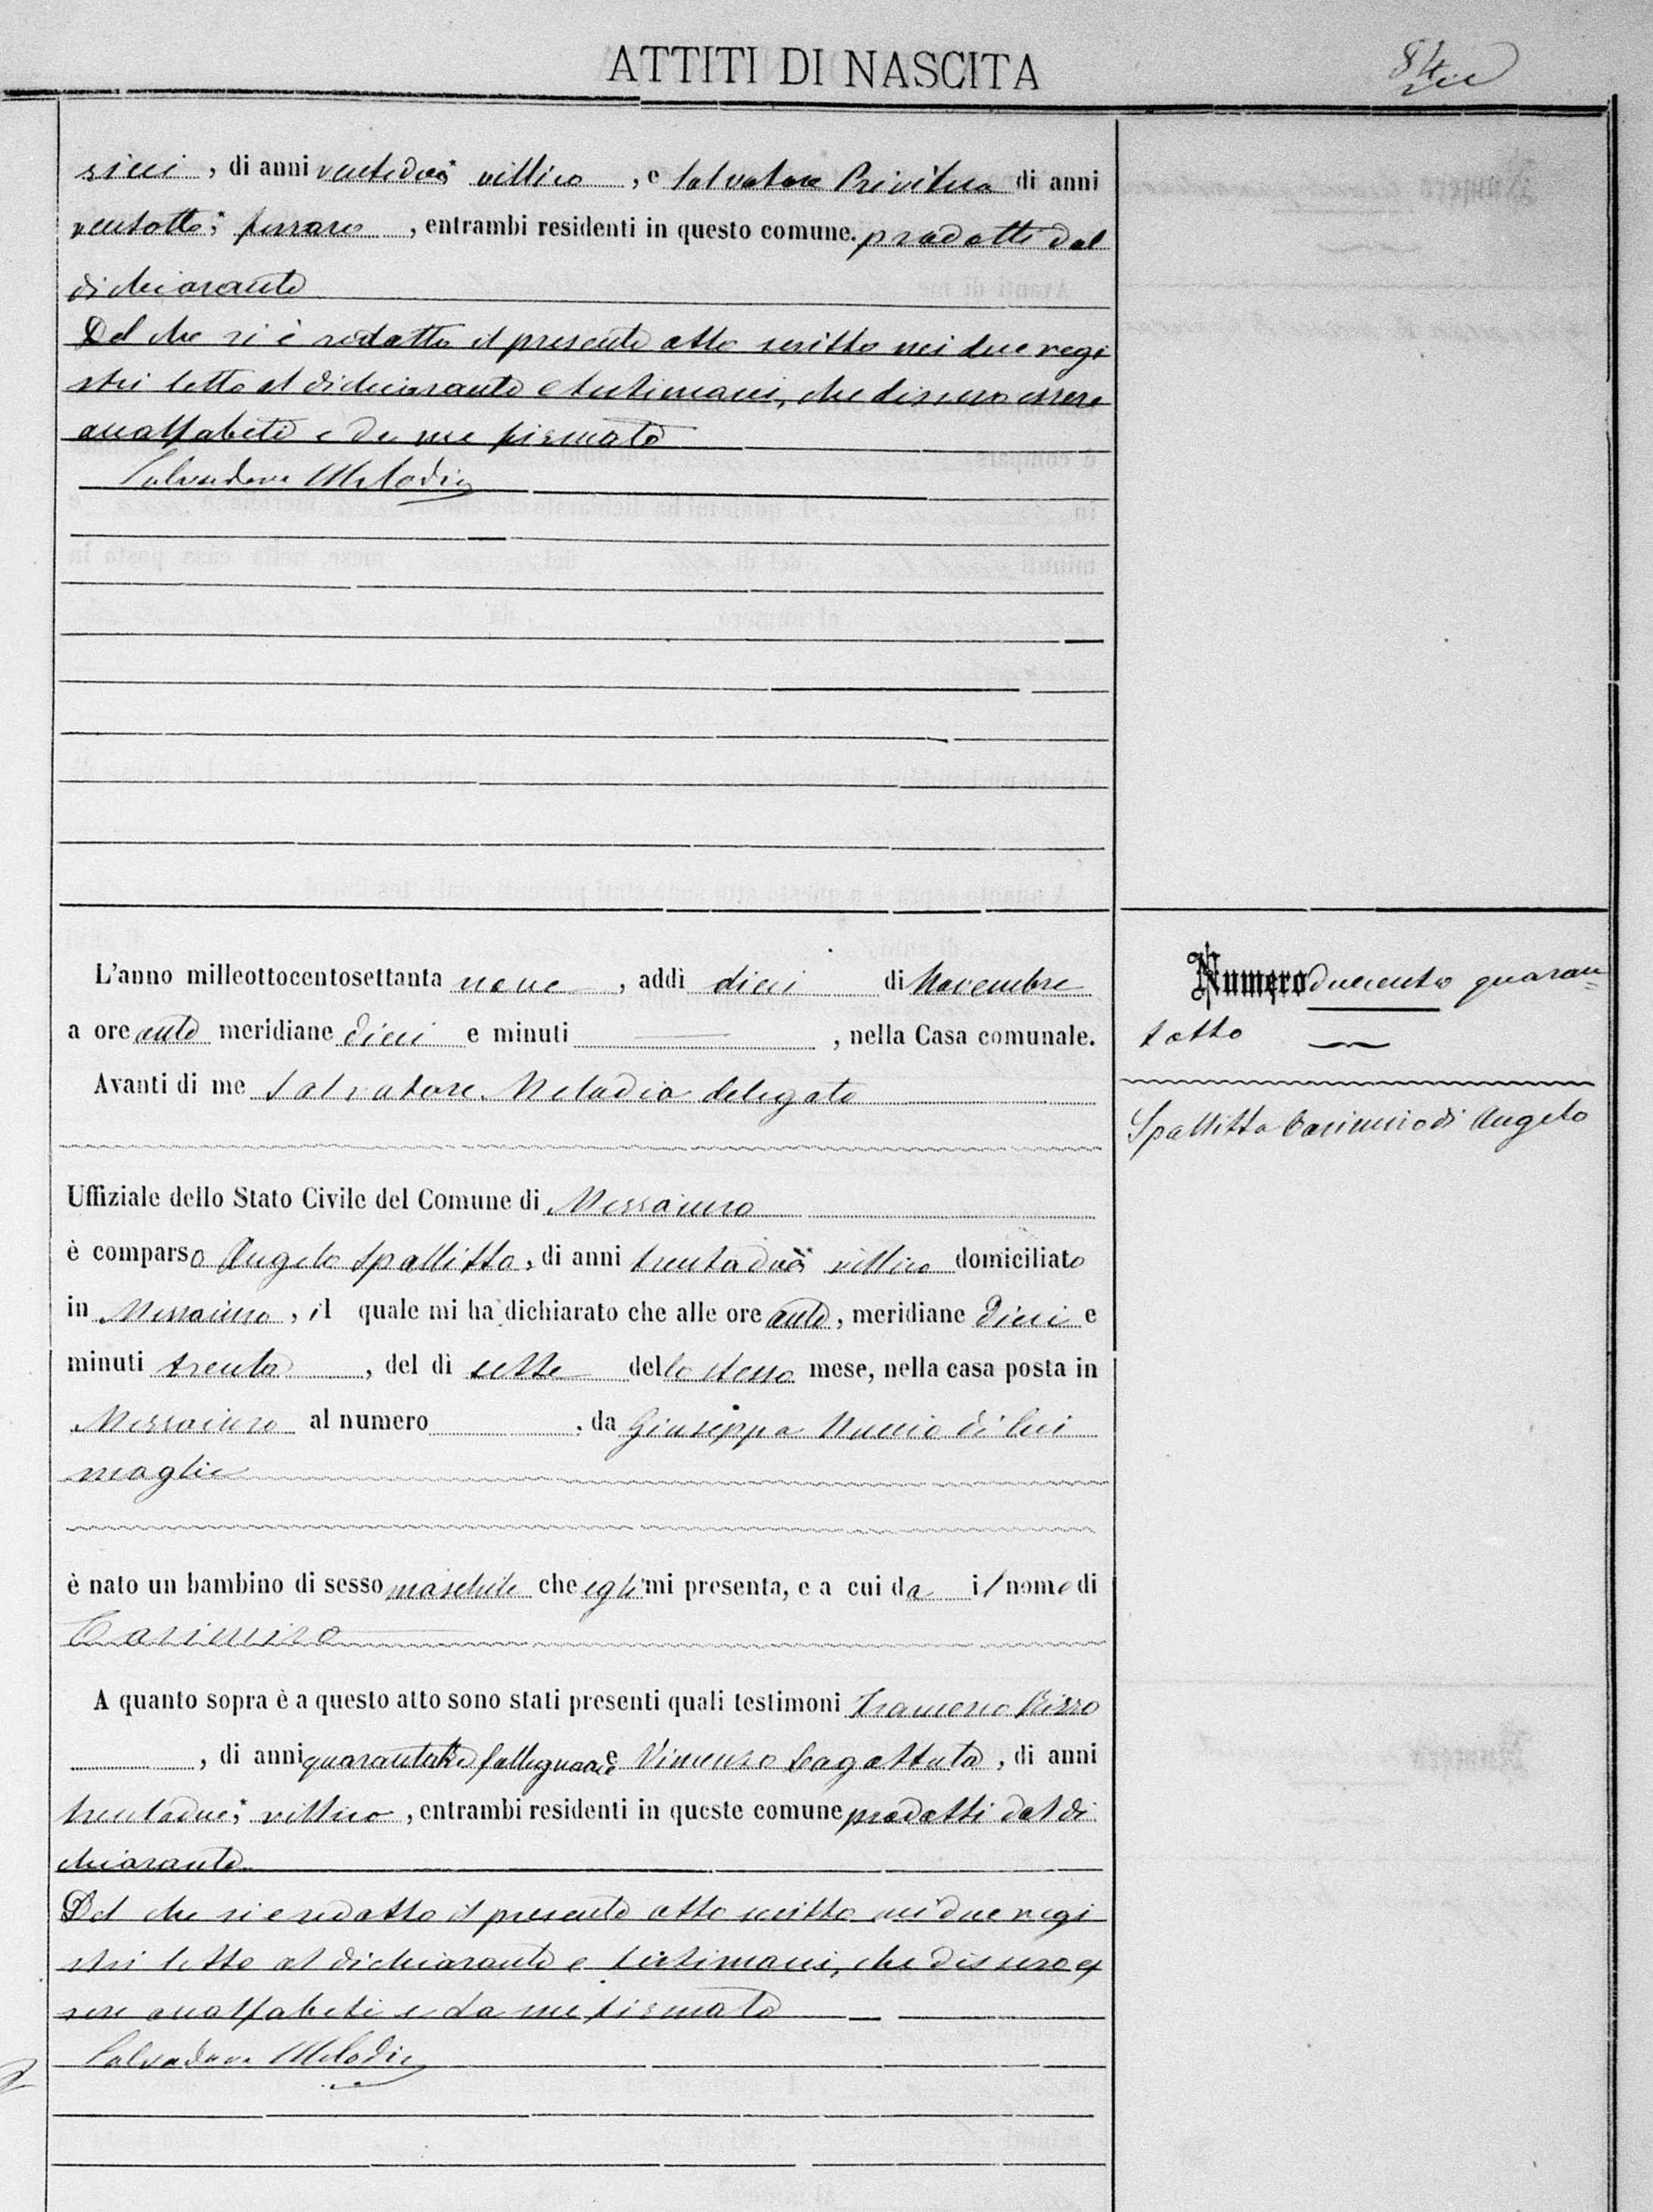 ATTITI DI NASCITA
84
sicci, di anni ventidue villico, e Salvatore Privitera di anni
ventotto; ferraro, entrambi residenti in questo comune. prodotti dal
dichiarante
Del che si è redatto il presente atto scritto nei due regi
stri letto al dichiarante e testimoni, che dissero essere
analfabeti e da me firmato
Salvadore Melodia
L'anno milleottocentosettanta nove, addì dieci di Novembre
a ore ante meridiane dieci e minuti —, nella Casa comunale.
Avanti di me Salvatore Melodia delegato
Uffiziale dello Stato Civile del Comune di Mezzoiuso
è comparso Angelo Spallitta, di anni trentadue villico domiciliato
in Mezzoiuso, il quale mi ha dichiarato che alle ore ante, meridiane dieci e
minuti trenta, del dì sette dello stesso mese, nella casa posta in
Mezzoiuso al numero , da Giuseppa Nuccio di lui
moglie
è nato un bambino di sesso maschile che egli mi presenta, e a cui da il nome di
Casimiro
A quanto sopra è a questo atto sono stati presenti quali testimoni Francesco Rizzo
, di anni quarantatre fallegname e Vincenzo Lagattuta, di anni
trentadue; villico, entrambi residenti in queste comune prodotti dal di
chiarante
Del che si e redatto il presente atto scritto nei due regi
stri letto al dichiarante e testimoni, che dissero es
sere analfabeti e da me firmato
Salvadore Melodia
Numero duecento quaran=
totto
Spallitta Casimiro di Angelo